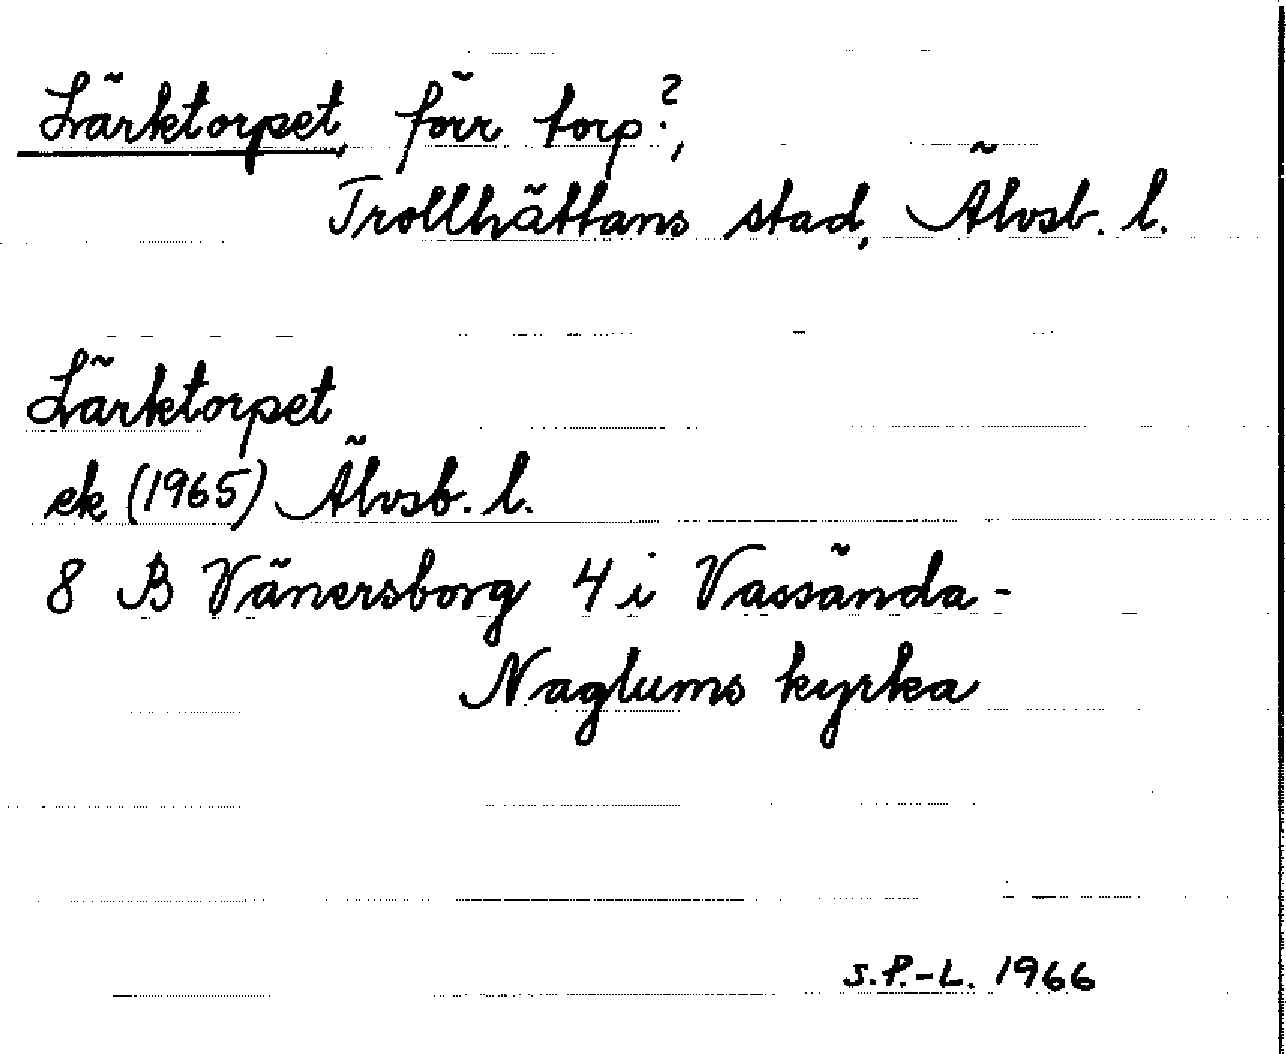 Lärktorpet, förr torp?,
Trollhättans stad, Älvsb. l.
Lärktorpet
ek (1965) Älvsb. l.
8 B Vänersborg 4 i Vassända-
Naglums kyrka
S.P.-L. 1966